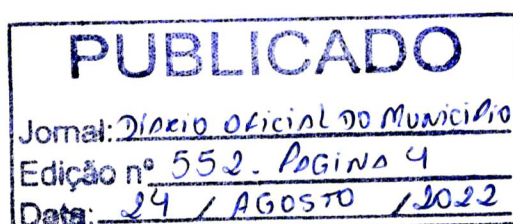 PUBLICADO
Jornal: DIARIO OFICIAL DO MUNICIPIO
Edição nº 552. PAGINA 4
Data: 24 / AGOSTO / 2022